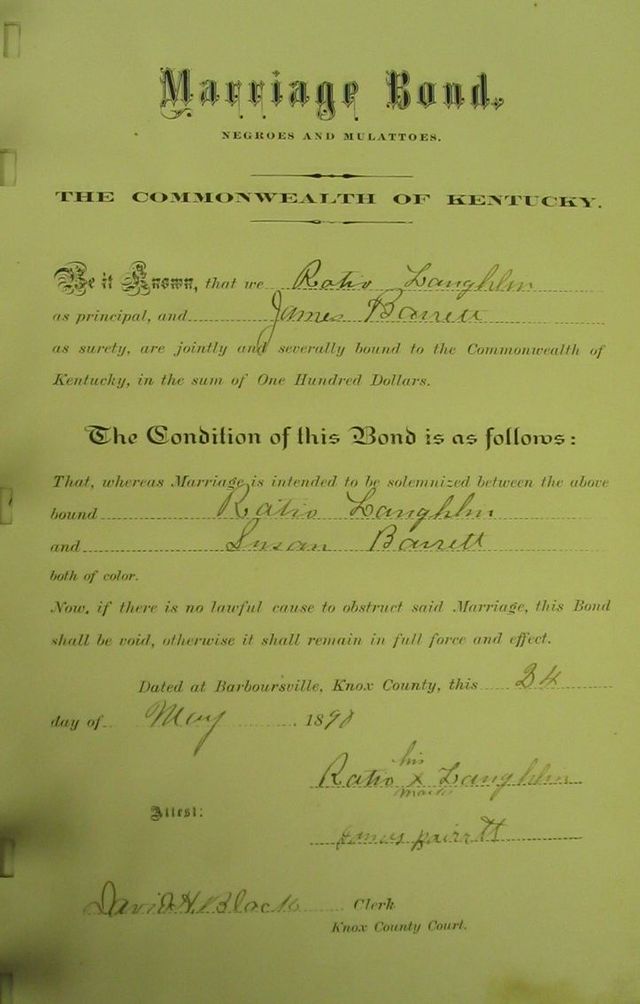 Marriage Bond.
NEGROES AND MULATTOES.
THE COMMONWEALTH OF KENTUCKY.
Be it Known, that we Ratio Laughlin
as principal, and James Barrett
as surety, are jointly and severally bound to the Commonwealth of
Kentucky, in the sum of One Hundred Dollars.
The Condition of this Bond is as follows:
That, whereas Marriage is intended to be solemnized between the above
bound Ratio Laughlin
and Susan Barrett
both of color.
Now, if there is no lawful cause to obstruct said Marriage, this Bond
shall be void, otherwise it shall remain in full force and effect.
Dated at Barboursville, Knox County, this 24
day of May 1898
his
Ratio X Laughlin
mark
Attest:
James
David H. Black Clerk
Knox County Court.